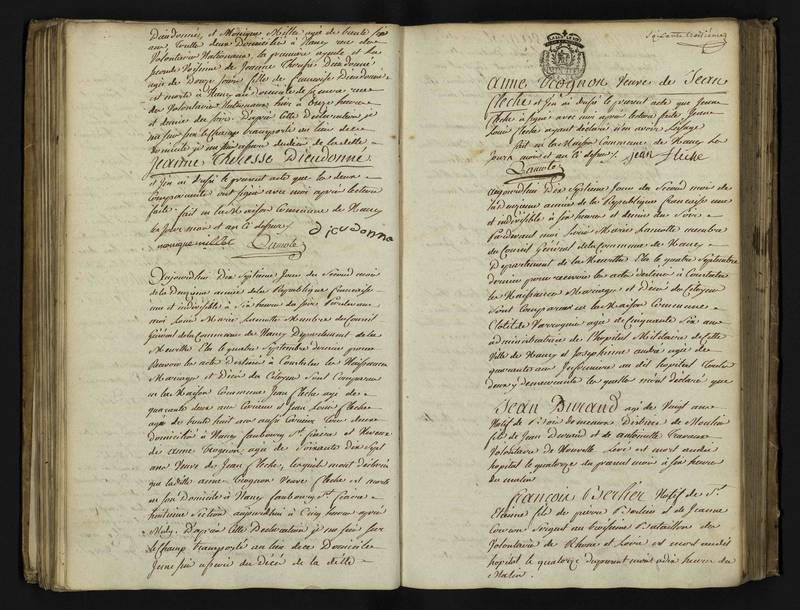 Dieudonné, et Monique Millet agée de trente six
ans, toutte deux Domiciliés à Nancy rue des
Volontaires Nationaux, la premiere ayeule et la
seconde voisinne de Jeanne Therese Dieudonné
agée de Douze jours fille de françoise Dieudonné
est morte à Nancy au domicile de sa mere, rue
des Volontaires Nationaux hier à onze heures
et demie du soir. D'après cette Declaration je
me suis sur le Champ transporté au lieu de ce
Domicile je me suis assuré du deces de la ditte
Jeanne Theresse Dieudonné
et j'en ai Dressé le present acte que les deux
Comparantes ont signé avec moi après lecture
faite. fait en la Maison Commune de Nancy
le jour mois et an ci dessus
monique millet Lamotte Dieudonné
Aujourdhui Dix Septieme Jour du Second mois
de la Deuxieme année de la Republique francaise
une et indivisible à six heures du soir Pardevant
moi Louis Marie Lamotte Membre du Conseil
Général de la Commune de Nancy Departement de la
Meurthe Elu le quatre Septembre dernier pour
Recevoir les actes destinés à Constater les Naissances
Mariages et Décès des Citoyens Sont Comparus
en la Maison Commune Jean fleche agé de
quarante deux ans Cordier et Jean Louis fleche
agé de trente huit ans aussi Cordier Tous deux
Domiciliés à Nancy faubourg St. Pierre et Neveux
de anne Vrognon, agée de Soixante Dix Sept
ans Veuve de Jean fleche, lesquels mont déclaré
que laditte anne Vrognon Veuve fleche est morte
en son Domicile à Nancy faubourg St pierre
huitieme Section aujourdhui à Cinq heures après
Midy. D'après Cette Declaration je me suis sur
le Champ transporté au lieu de ce Domicile
Je me suis assuré du Décès de la ditte
Soixante treizieme
anne Vrognon Veuve de Jean
fleche et j'en ai dressé le present acte que Jean
fleche a signé avec moi après lecture faite, Jean
Louis fleche ayant declaré n'en avoir l'usage
fait en la Maison Commune de Nancy Le
Jour mois et an ci dessus jean fleche
Lamotte
aujourdhui Dix Septieme Jour du Second mois de
la Deuxieme année de la Republique francaise une
et indivisible à six heures et demie du Soir
Pardevant moi Louis Marie Lamotte membre
du Conseil Général de la Commune de Nancy
Departement de la Meurthe Elu le quatre Septembre
dernier pour recevoir les actes destinés à Constater
les Naissances Mariages et Décès des Citoyens
Sont Comparus en la Maison Commune
agée de Cinquante six ans
administratrice de l'hopital Militaire de Cette
Ville de Nancy et Josephinne andre agée de
quarante ans Infirmiere au dit hopital toutte
deux y demeurante les quelles m'ont declaré que
Jean Durand agé de Vingt ans
Natif de District de Moulin
fils de Jean Durand et de antoinette
Volontaire de est mort audit
hopital le quatorze du present mois à six heures
du matin
françois Natif de St.
Etienne fils de pierre et de Jeanne
sergent au troisieme Bataillon des
Volontaires de Rhone et Loire est mort audit
hopital le quatorze du present mois à dix heures du
Matin.